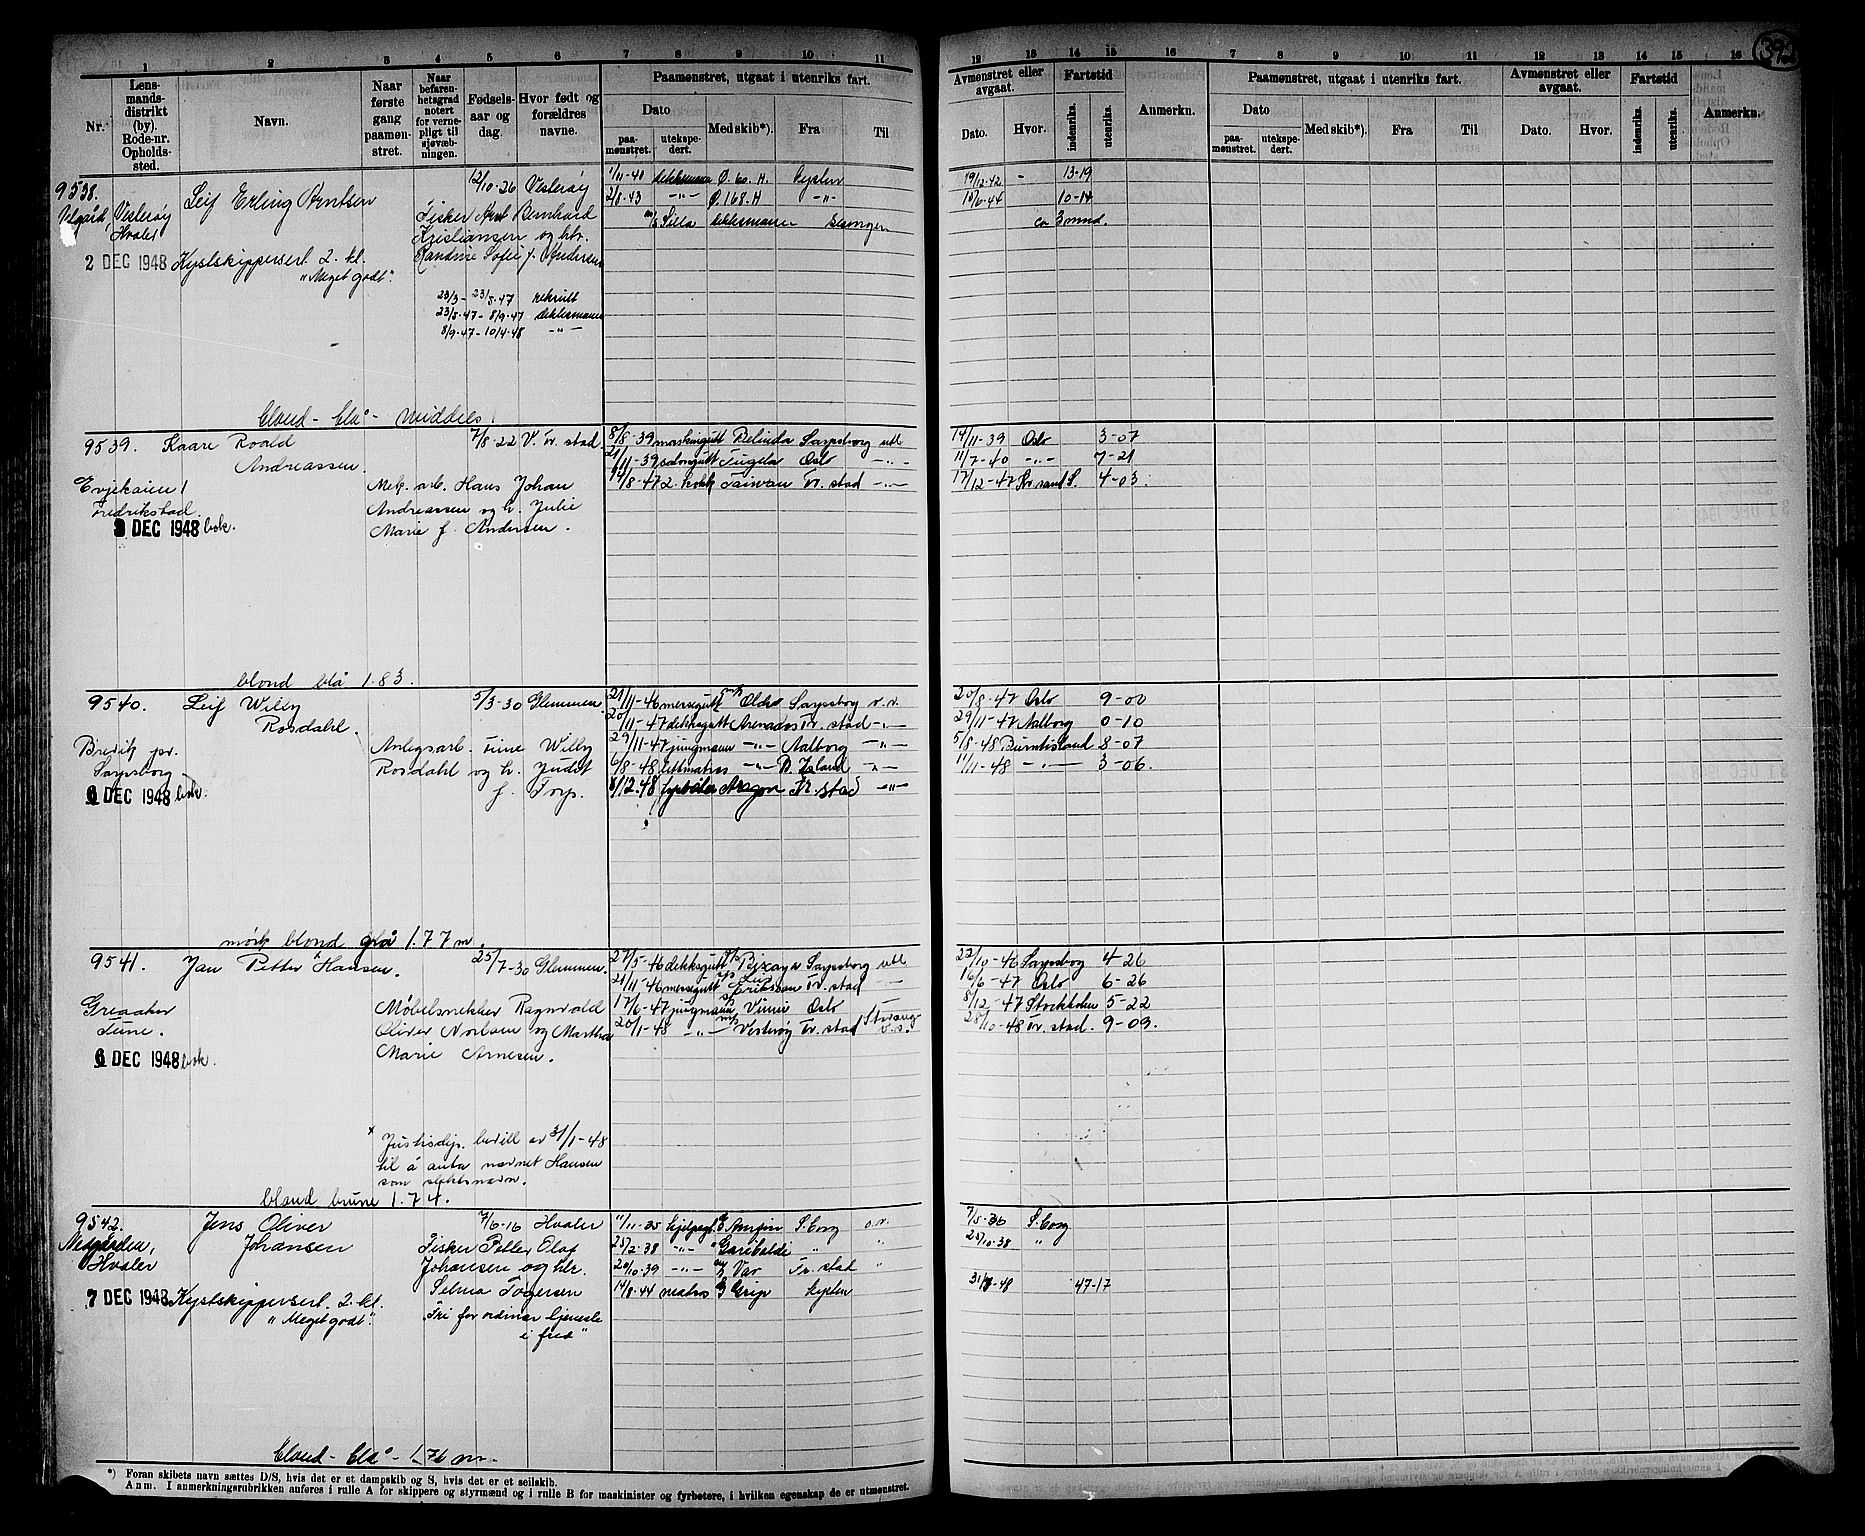 1 2 3 4 5 6 7 8 9 10 11
Nr. Lens-mands-distrikt (by). Rode-nr. Opholds-sted. Navn. Naar første gang paamøn-stret. Naar befaren-hetsgrad notert for verne-pligt til sjøvæb-ningen. Fødsels-aar og dag. Hvor født og forældres navne.
Paamønstret, utgaat i utenriks fart.
Dato paa-mønstret. utekspe-dert. Med skib*). Fra Til
12 13 14 15 16 7 8 9 10 11 12 13 14 15 16
Avmønstret eller avgaat. Dato. Hvor. Fartstid indenriks. utenriks. Anmerkn.
Paamønstret, utgaat i utenriks fart.
Dato paa-mønstret. utekspe-dert. Med skib*). Fra Til
Avmønstret eller avgaat. Dato. Hvor. Fartstid indenriks. utenriks. Anmerkn.
9538. Leif Erling Arntsen 12/10-26 Vesterøy
Vesterøy
Hvaler
Fisker Arnt Bernhard
Kristiansen og htr.
Randine Sofie f. Andersen
2 DEC 1948 Kystskippersert. 2. kl.
"Meget godt".
23/3-23/5-47 rekrutt
23/5-47-8/9-47 dekksmann
8/9-47-10/4-48 -"-
1/11-40 dekksmann Ø. 60. H. kysten 19/12-42 - 13-19
2/8-43 -"- Ø. 168. H -"- 15/6-44 10-14
dekksmann sesongen ca 3 mnd.
blond - blå - middels
9539. Kaare Roald
Andreassen.
7/8-22 V. Fr. stad
Evjekaien 1
Fredrikstad.
Mek. arb. Hans Johan
Andreassen og h. Julie
Marie f. Andersen.
DEC 1948 besk.
8/8-39 maskingutt Belinda Sarpsborg utl 14/11-39 Oslo 3-07
21/11-39 salongutt Tugela Oslo -"- 11/7-40 -"- 7-21
14/8-47 2. kokk Taiwan Fr. stad -"- 17/12-47 Kr. sand S. 4-03
blond blå 1.83.
9540. Leif Willy
Rosdahl.
5/3-30 Glemmen.
Brevik pr.
Sarpsborg
Anlegsarb. Fine Willy
Rosdahl og h. Judit
f. Torp.
6 DEC 1948 besk.
21/11-46 messegutt Sarpsborg v.v. 20/8-47 Oslo 9-00
20/11-47 dekksgutt Fr. stad -"- 29/11-47 Aalborg 0-10
29/11-47 jungmann -"- Aalborg -"- 5/8-48 Burntisland 8-07
6/8-48 lettmatros -"- B. Island -"- 11/11-48 -"- 3-06.
8/12-48 fyrbøter Aragon Fr. stad -"-
mørk blond grå 1.77 m.
9541. Jan Petter x Hansen. 25/7-30 Glemmen.
Greaaker
Tune.
Møbelsnekker Ragnvald
Oliver Norlsen og Martha
Marie Arnesen.
6 DEC 1948 besk.
27/5-46 dekksgutt Sarpsborg utl 22/10-46 Sarpsborg 4-26
21/11-46 messegutt Leif Eriksson Fr. stad -"- 16/6-47 Oslo 6-26
17/6-47 jungmann Oslo 8/12-47 Stockholm 5-22
20/1-48 -"- Vesterøy Fr. stad 28/10-48 Fr. stad. 9-09.
x Justisdep. bevill av 31/1-48
til å anta navnet Hansen
som slektsnavn.
blond brune 1.74.
9542. Jens Oliver
Johansen
7/6-16 Hvaler
Hvaler
Fisker Peller Olaf
Johansen og htr.
Selma Torgersen
7 DEC 1948 Kystskippersert. 2. kl.
"Meget godt".
"Fri for ordinær tjeneste
i fred"
11/11-35 S.borg o.v. 7/5-36 S.borg
25/2-38 -"- Garibaldi " " 25/10-38 "
20/10-39 -"- Var Fr. stad "
14/8-44 matros Grip kysten 47-17
blond - blå - 1.76 m.
*) Foran skibets navn sættes D/S, hvis det er et dampskib og S, hvis det er et seilskib.
Anm. I anmerkningsrubrikken anføres i rulle A for skippere og styrmænd og i rulle B for maskinister og fyrbøtere, i hvilken egenskap de er utmønstret.